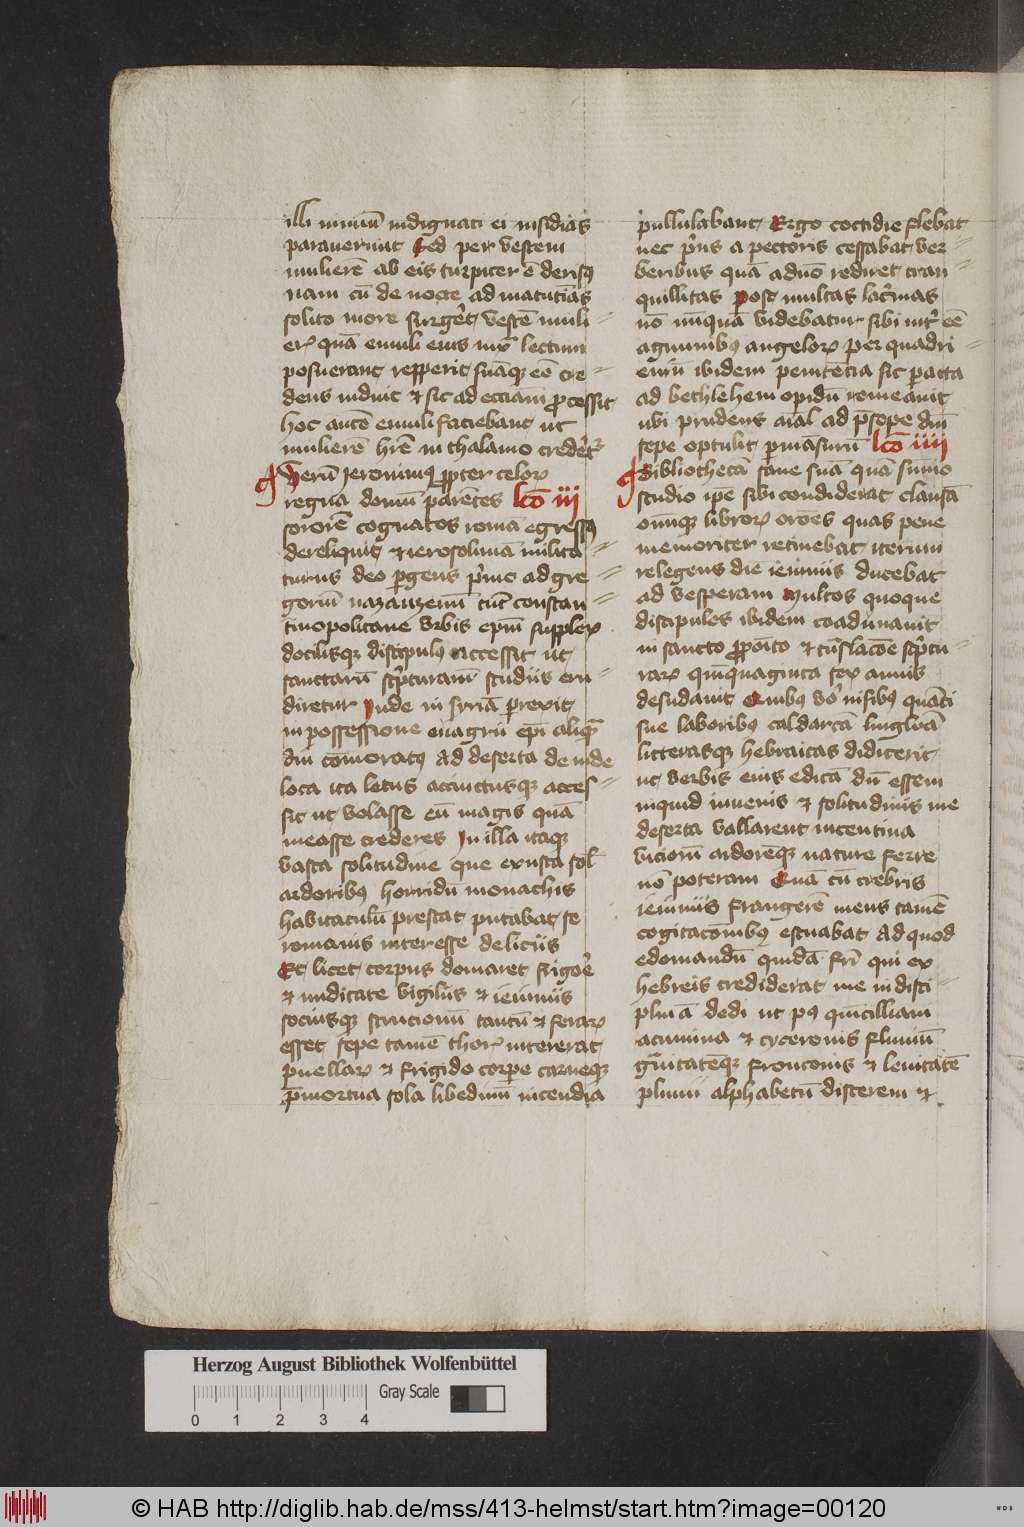 illi nimiū indignati ei insidias
parauerunt Sed per vestem
mulierē ab eis turpiter ē derisꝰ
nam cū de nocte ad matutīas
solito more surgeret vestē muli
erꝫ quā emuli eius iuxͣ lectum
posuerant repperit suāqꝫ eē cre
dens induit ⁊ sic ad ecciam processit
hoc autē emuli faciebant ut
mulierē hrē in thalamo crederetͬ
Verū Jeronimꝰ ꝓpter celorꝫ
regna domū parētes lcō iii
sororē cognatos roma egressꝰ
dereliquit ⁊ ierosolimā milita
turus deo pergens primo ad gre
goriū nazanzenū tūc constan
tinopolitane vrbis epm̄ supplex
docilisqꝫ discipulꝰ accessit ut
sanctarū scripturarum studiis eru
diretur Inde in syriā perrexit
in possessione euagrii epi aliqͣ
diu cōmoratꝰ ad deserta de inde
loca ita letus accinctusqꝫ acces
sit ut volasse eū magis quā
measse crederes In illa itaqꝫ
vasta solitudine que exusta sol̄
ardoribꝰ horridū monachis
habitaculū prestat putabat se
romanis interesse deliciis
Et licet corpus domaret frigore
⁊ nuditate vigiliis ⁊ ieiuniis
sociusqꝫ scorcionū tantū ⁊ ferarꝫ
esset sepe tamē chorꝫ intererat
puellarꝫ ⁊ frigido corpe carneqꝫ
p̄mortua sola libedinū incendia
pullulabant Ergo cottidie flebat
nec prius a pectoris cessabat ver
beribus quā a dn̄o rediret tran
quillitas post multas lacrimas
nō nūquā videbatur sibi intͬ eē
agminibꝰ angelorꝫ per quadri
eniū ibidem penitēcia sic pacta
ad bethlehem opidū remeauit
ubi prudens aīal ad presepe dn̄i
sepe optulit permāsurū lcō iiii
Bibliothecā sane suā quā sum̄o
studio ip̄e sibi condiderat clausā
omniqꝫ librorꝫ orōes quas pene
memoriter retinebat iterum
relegens die ieiuniis ducebat
ad vesperam Multos quoque
discipulos ibidem coadunauit
in sancto proposito ⁊ trāslacōe scriptu
rarꝫ quīquaginta sex annis
desudauit Quibus vō nisibꝰ quāti
sue laboribꝰ caldaicā linguā
litterasqꝫ hebraicas didicerit
ut verbis eius edicā dū essem
inquid iuuenis ⁊ solitudinis me
deserta vallarent incentiua
viciorū ardorēqꝫ nature ferre
nō poteram Quā cū crebris
ieiuniis frangerē mens tamē
cogitacōnibꝰ estuabat ad quod
edomandū quidā fr̄i qui ex
hebreis crediderat me in disci
plinā dedi ut pꝰ quintilliani
acumina ⁊ cyceronis fluuiū
grauitatēqꝫ frontonis ⁊ lenitatē
plinii alphabetū discerem ⁊
Herzog August Bibliothek Wolfenbüttel
0 1 2 3 4 Gray Scale
© HAB http://diglib.hab.de/mss/413-helmst/start.htm?image=00120
WDB